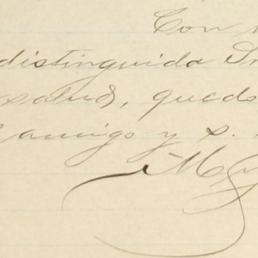 Con
distinguida
salud, quedo
amigo y s.